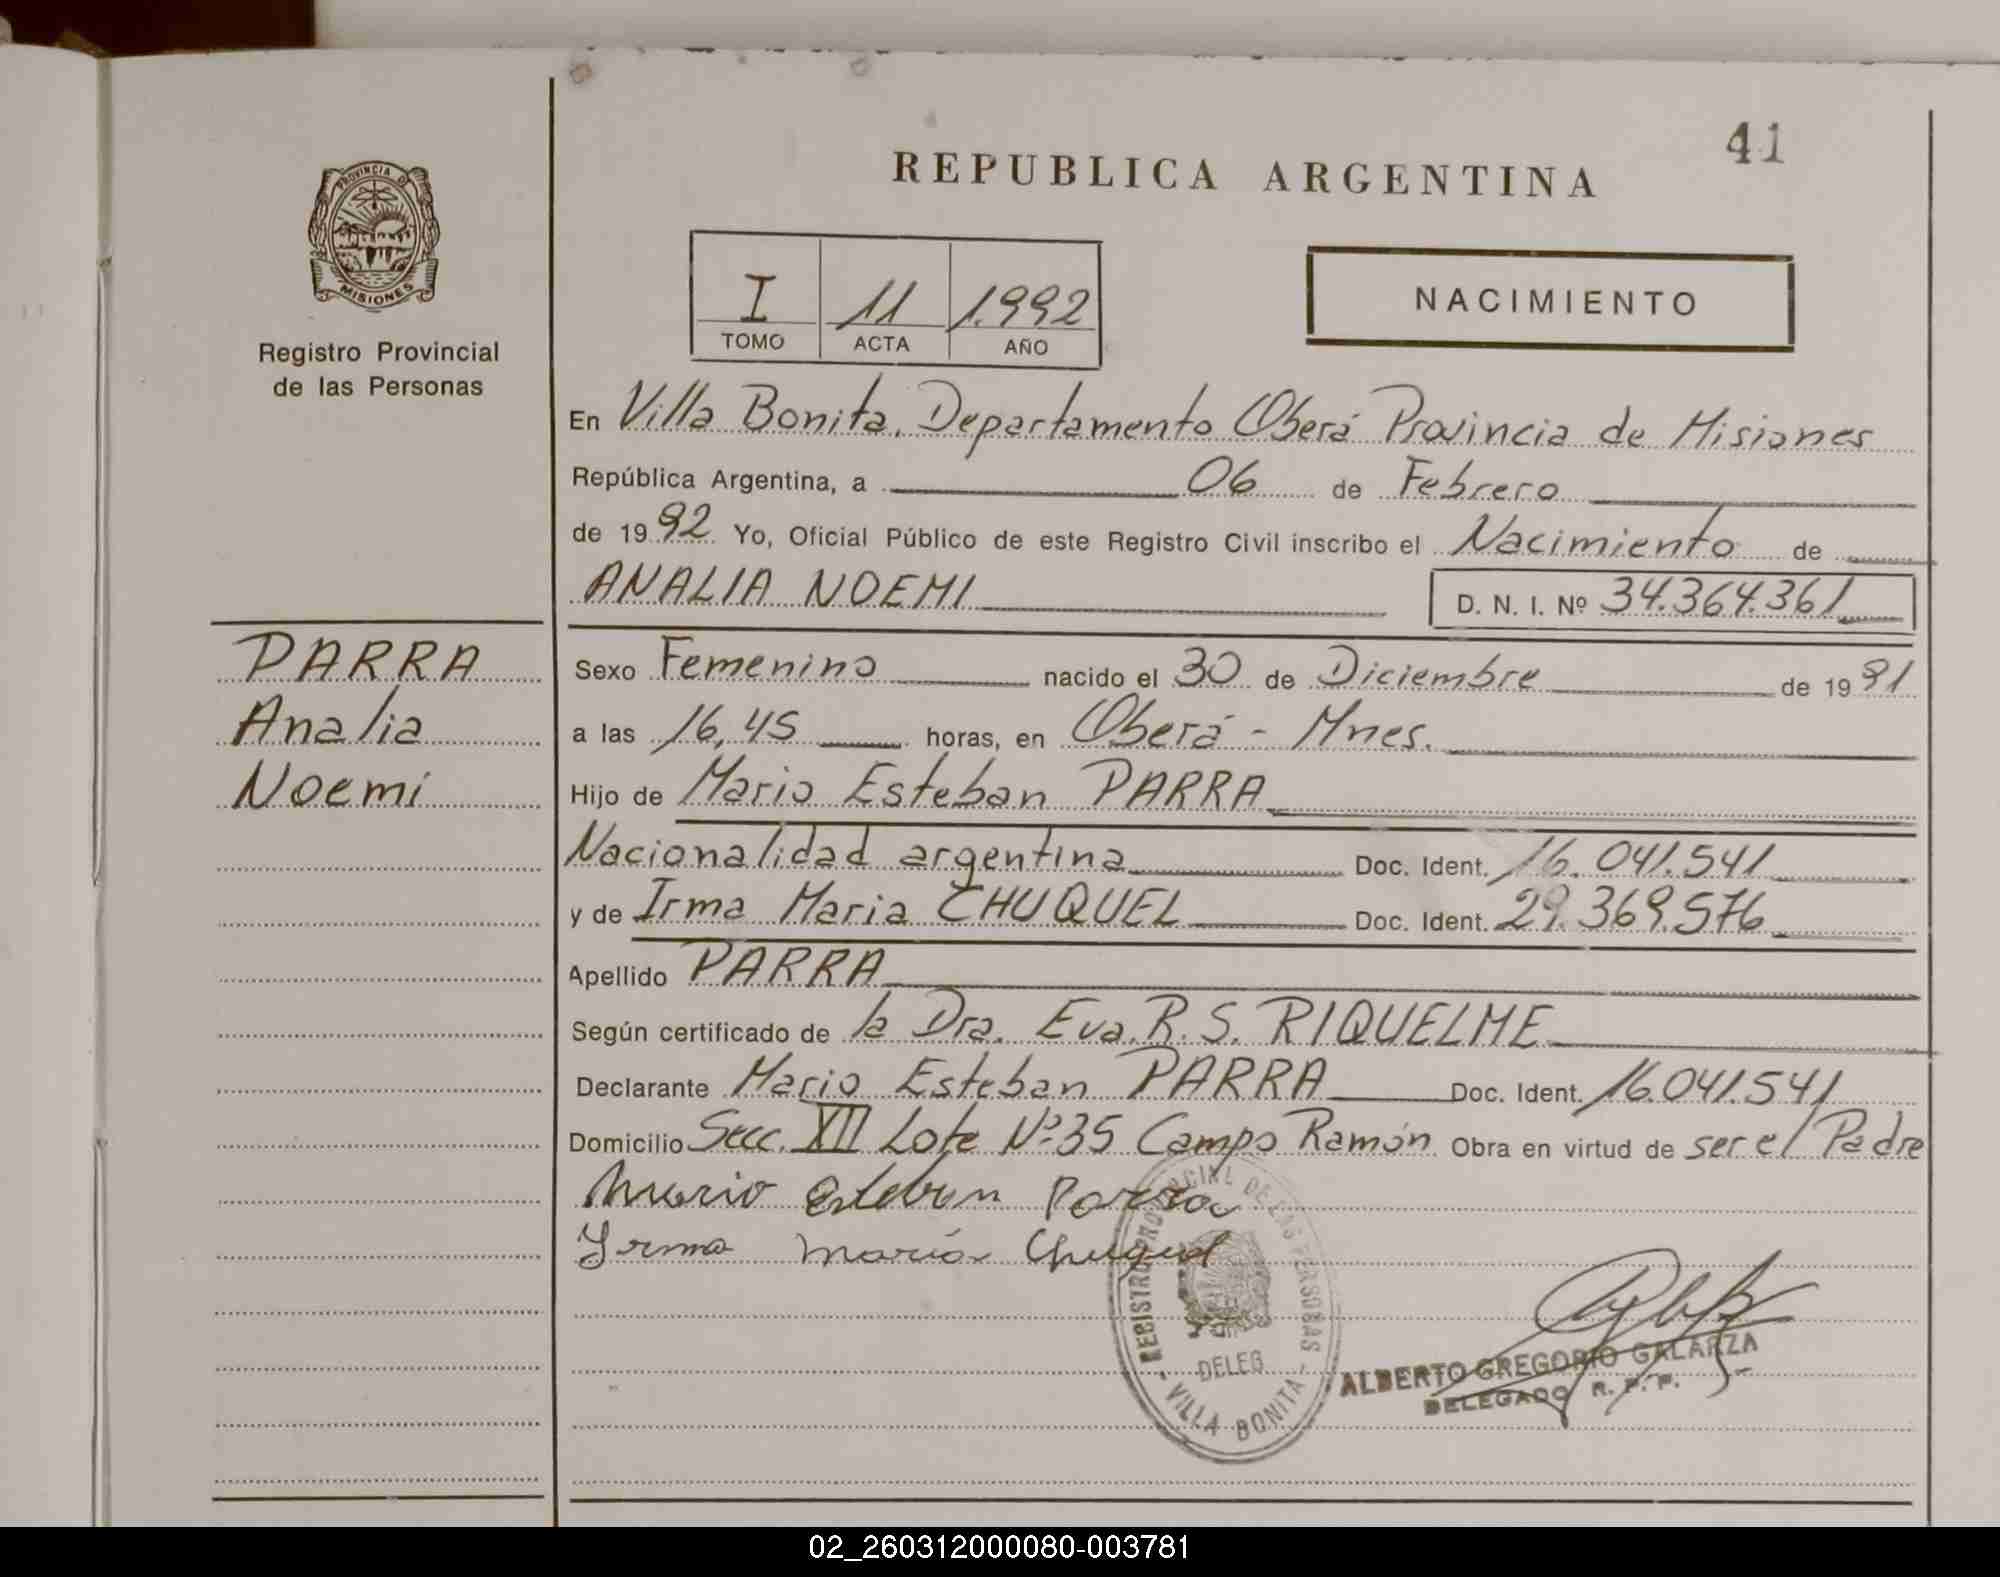 41
REPUBLICA ARGENTINA
PROVINCIA D
MISIONES
Registro Provincial
de las Personas
I 11 1.992
TOMO ACTA AÑO
NACIMIENTO
En Villa Bonita, Departamento Oberá Provincia de Misiones
República Argentina, a 06 de Febrero
de 1992 Yo, Oficial Público de este Registro Civil inscribo el Nacimiento de
ANALIA NOEMI D. N. I. Nº 34.364.361
PARRA
Analia
Noemí
Sexo Femenino nacido el 30 de Diciembre de 1991
a las 16,45 horas, en Oberá - Mnes.
Hijo de Mario Esteban PARRA
Nacionalidad argentina Doc. Ident. 16.041.541
y de Irma Maria CHUQUEL Doc. Ident. 29.369.576
Apellido PARRA
Según certificado de la Dra. Eva. R. S. RIQUELME
Declarante Mario Esteban PARRA Doc. Ident. 16.041.541
Domicilio Secc. XII Lote Nº 35 Campo Ramón Obra en virtud de ser el Padre
Mario Esteban Parra
Yrma maria Chuquel
REGISTRO PROVINCIAL DE LAS PERSONAS
DELEG
- VILLA BONITA -
ALBERTO GREGORIO GALARZA
DELEGADO R. P. P.
02_260312000080-003781